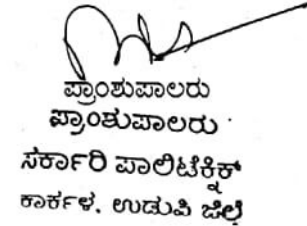 ಪ್ರಾಂಶುಪಾಲರು
ಪ್ರಾಂಶುಪಾಲರು
ಸರ್ಕಾರಿ ಪಾಲಿಟೆಕ್ನಿಕ್
ಕಾರ್ಕಳ, ಉಡುಪಿ ಜಿಲ್ಲೆ